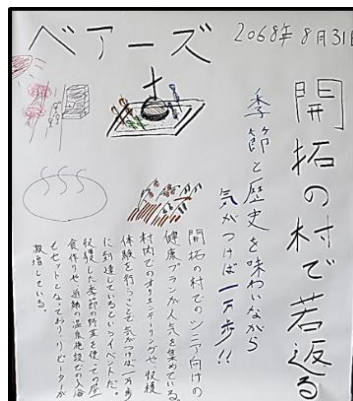 ベアーズ
2068年8月31日
開拓の村で若返る
季節と歴史を味わいながら
気がつけば一万歩!!
開拓の村でのシニア向けの
健康プランが人気を集めている。
村内でのオリエンテーリングや収穫
体験を行うことで気がつけば一万歩
に到達しているというイベントだ。
収穫した季節の野菜を使っての昼
食作りや、近隣の温泉施設での入浴
もセットとなっており、リピーターが
激増している。